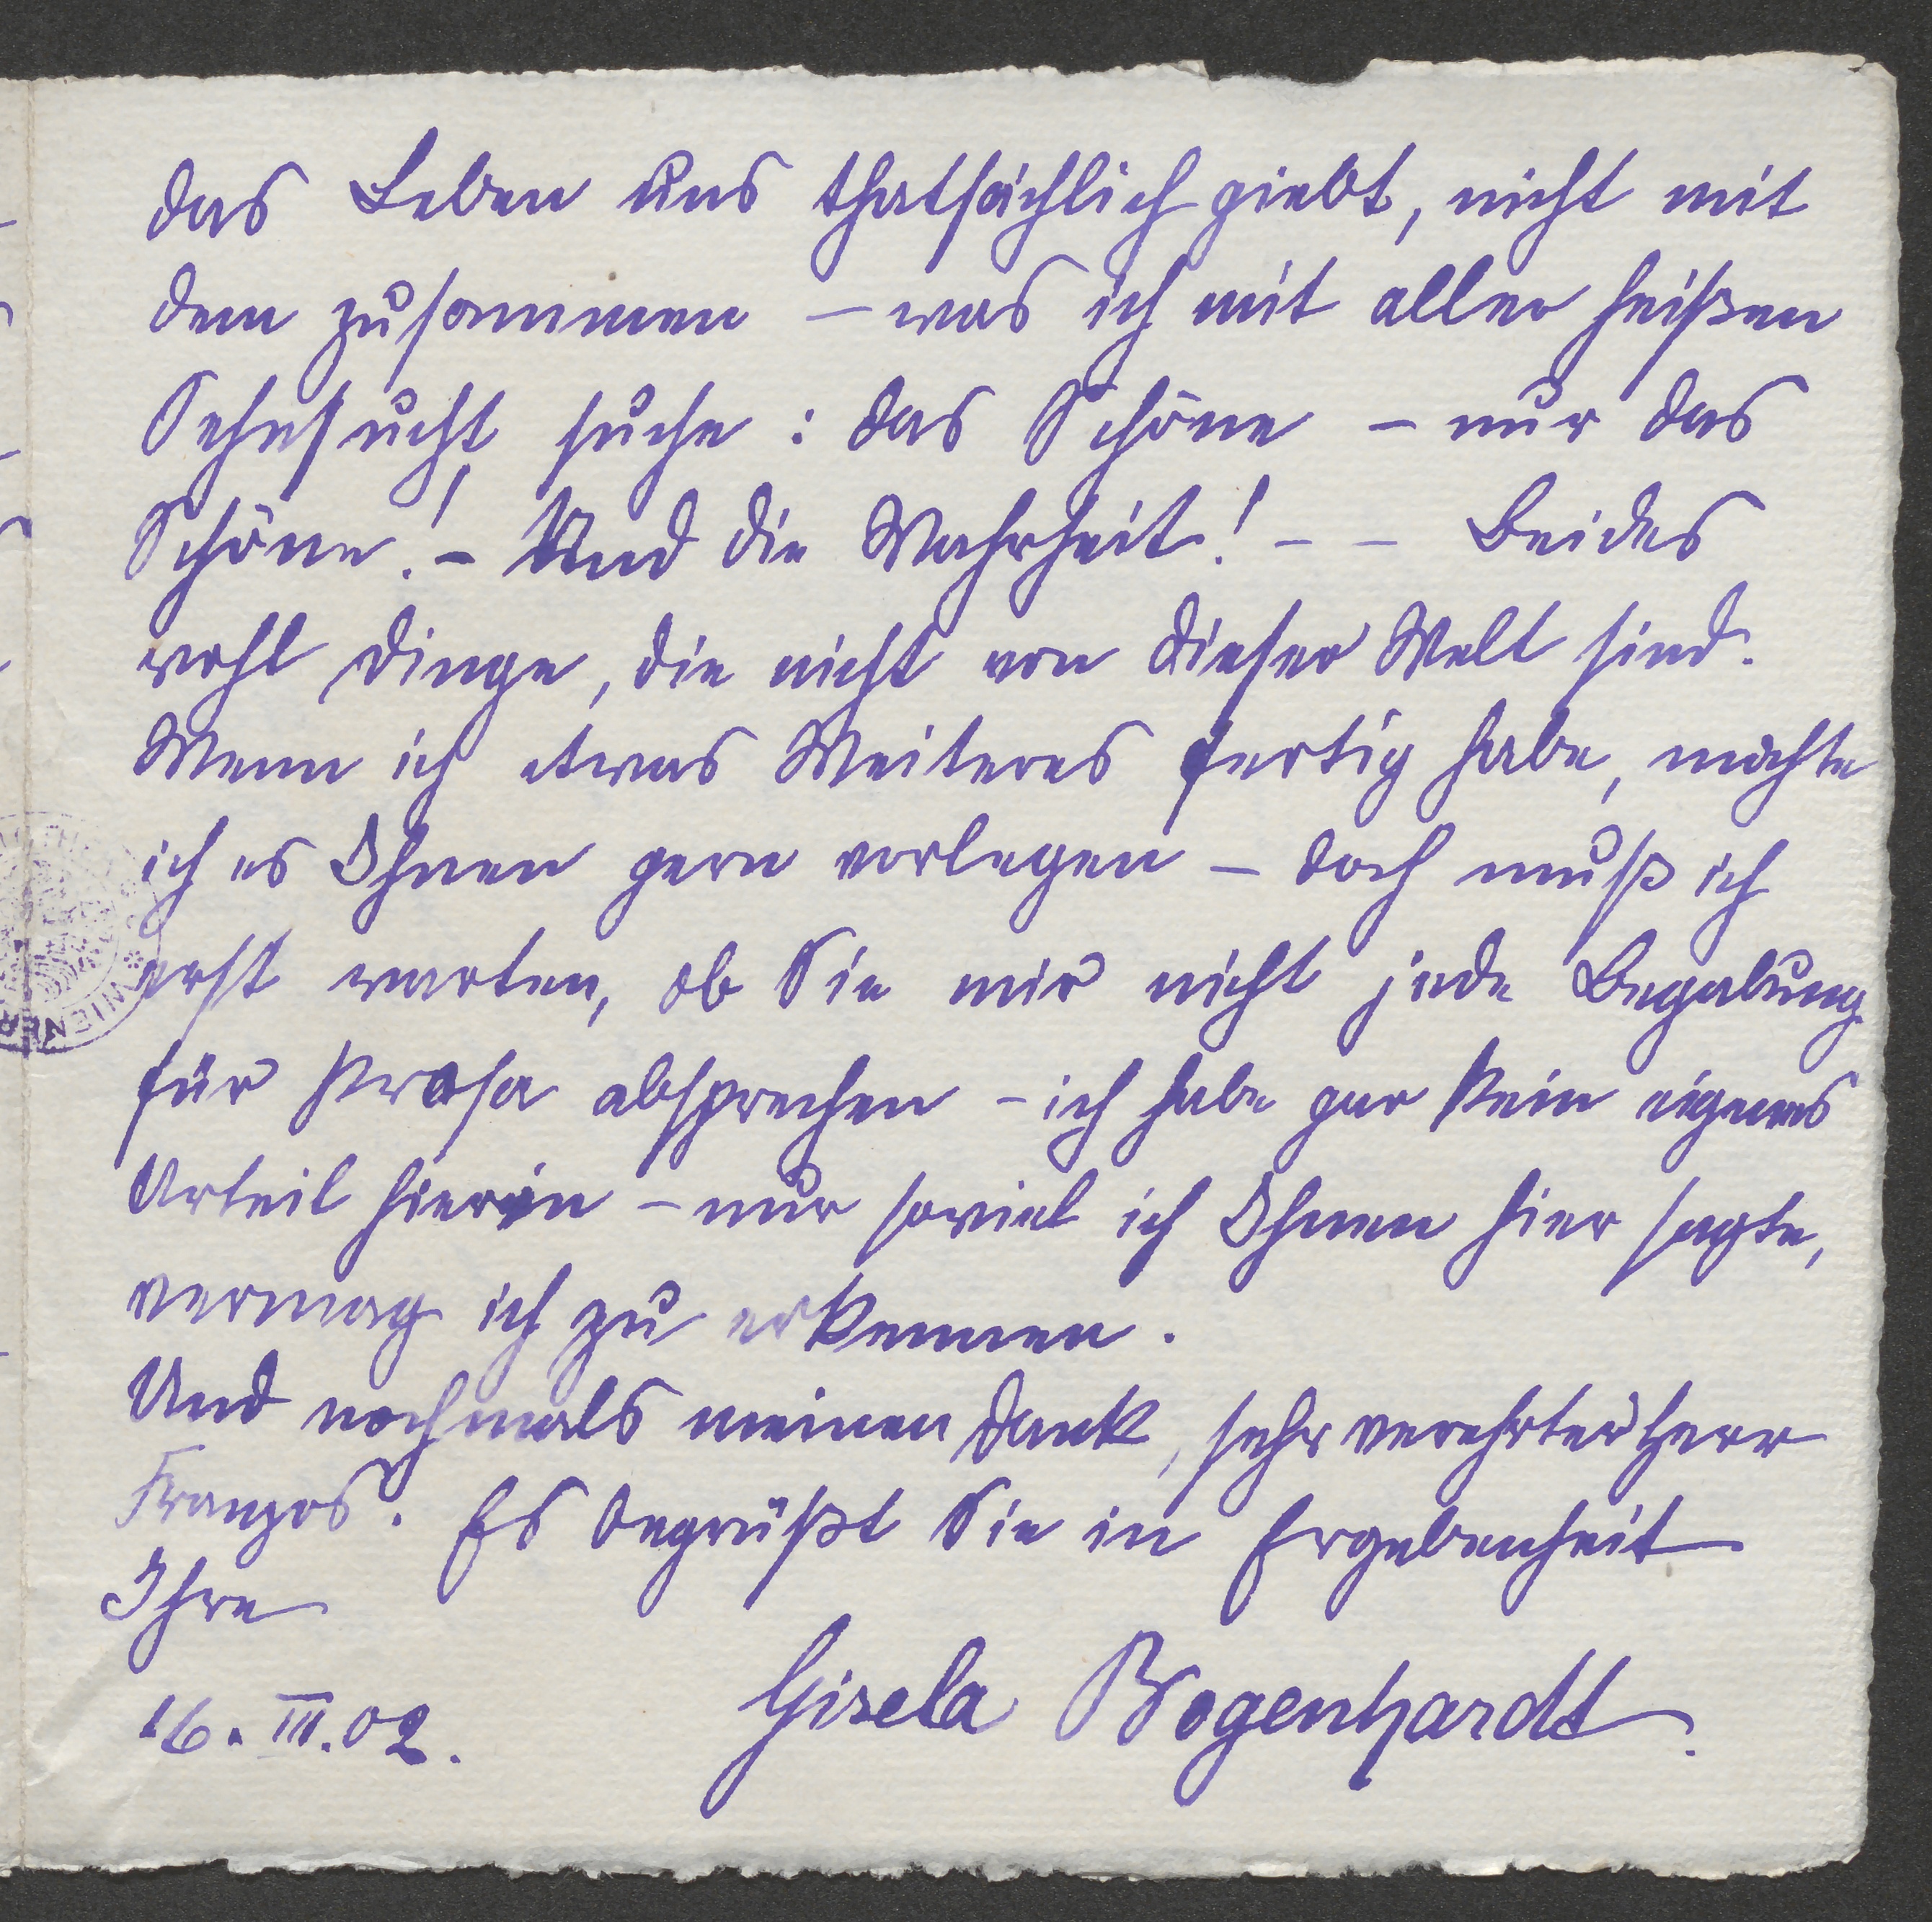 das Leben uns thatsächlich giebt, nicht mit
dem zusammen – was ich mit aller heißen
Sehnsucht suche: das Schöne – nur das
Schöne! – Und die Wahrheit! – – Beides
wohl Dinge, die nicht von dieser Welt sind.
Wenn ich etwas Weiteres fertig habe, möchte
ich es Ihnen gern vorlegen – doch muß ich
erst warten, ob Sie mir nicht jede Begabung
für Prosa absprechen – ich habe gar kein eigenes
Urteil hierin – nur soviel ich Ihnen hier sagte,
vermag ich zu erkennen.
Und nochmals meinen Dank, sehr verehrter Herr
Franzos. Es begrüßt Sie in Ergebenheit
Ihre
Gisela Bogenhardt.
16. III. 02.
WIENER